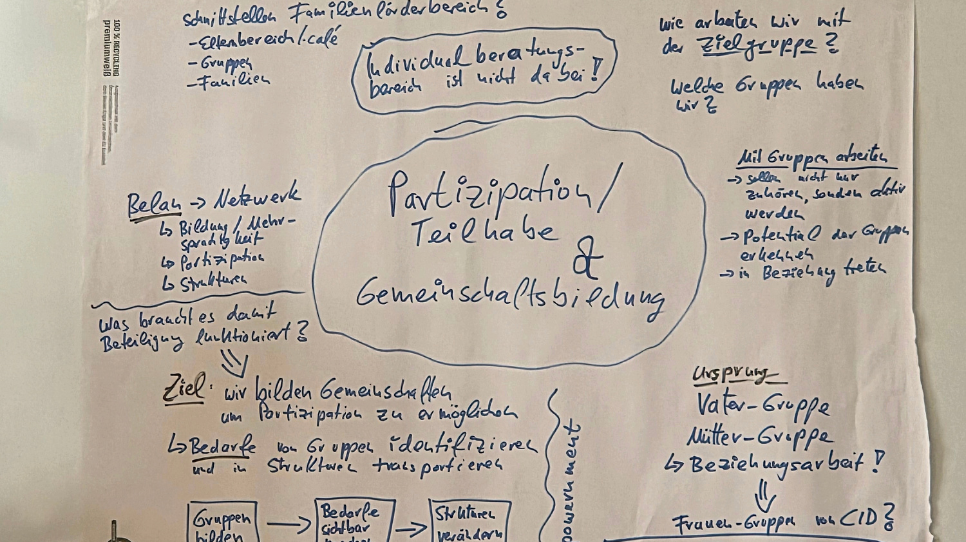 Schnittstellen Familienförderbereich?
- Elternbereich/-café
- Gruppen
- Familien
100 % RECYCLING
premiumweiß
Individualberatungs-
bereich ist nicht dabei!
wie arbeiten wir mit
der Zielgruppe?
Welche Gruppen haben
wir?
Partizipation/
Teilhabe
&
Gemeinschaftsbildung
Belan → Netzwerk
↳ Bildung/Mehr-
sprachigkeit
↳ Partizipation
↳ Strukturen
Mit Gruppen arbeiten
→ sollen nicht nur
zuhören, sondern aktiv
werden
→ Potential der Gruppen
erkennen
→ in Beziehung treten
Was braucht es damit
Beteiligung funktioniert?
Ziel: wir bilden Gemeinschaften
um Partizipation zu ermöglichen
↳ Bedarfe von Gruppen identifizieren
und in Strukturen transportieren
Gruppen
bilden
→
Bedarfe
sichtbar
→
Strukturen
verändern
powernment
Ursprung
Vater-Gruppe
Mütter-Gruppe
↳ Beziehungsarbeit!
Frauen-Gruppen von CID?